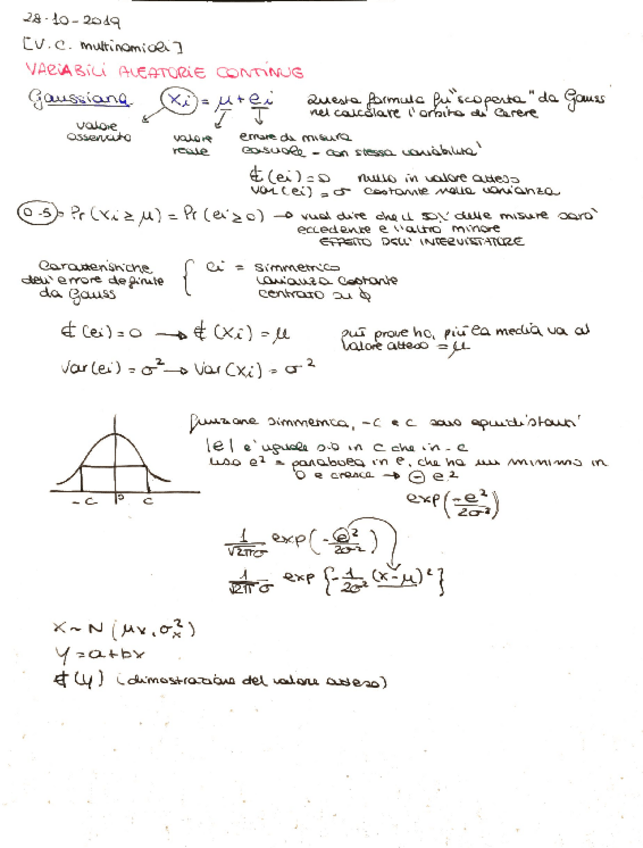 28-10-2019
[V.C. multinomiali]
VARIABILI ALEATORIE CONTINUE
Gaussiana Xi = μ + ei Questa formula fu "scoperta" da Gauss
nel calcolare l'orbita di Cerere
valore osservato
valore reale
errore di misura
casuale - con stessa variabilità
E(ei) = 0 nullo in valore atteso
Var(ei) = σ costante nella varianza
0.5 = Pr(Xi ≥ μ) = Pr(ei ≥ 0) → vuol dire che il 50% delle misure sarà
eccedente e l'altro minore
EFFETTO DELL'INTERVISTATORE
Caratteristiche
dell'errore definite
da Gauss
{ ei = simmetrico
varianza costante
centrato su 0
E(ei) = 0 → E(Xi) = μ più prove ho, più la media va al
valore atteso = μ
Var(ei) = σ² → Var(Xi) = σ²
funzione simmetrica, -c e c sono equidistanti
|e| e' uguale sia in c che in -c
uso e² = parabola in e, che ha un minimo in
0 e cresce → ⊖ e²
-c 0 c
exp(-e²/2σ²)
1/√2πσ exp(-e²/2σ²)
1/√2πσ exp{-1/2σ² (x-μ)²}
X ~ N(μx, σ²x)
Y = a+bx
E(Y) (dimostrazione del valore atteso)